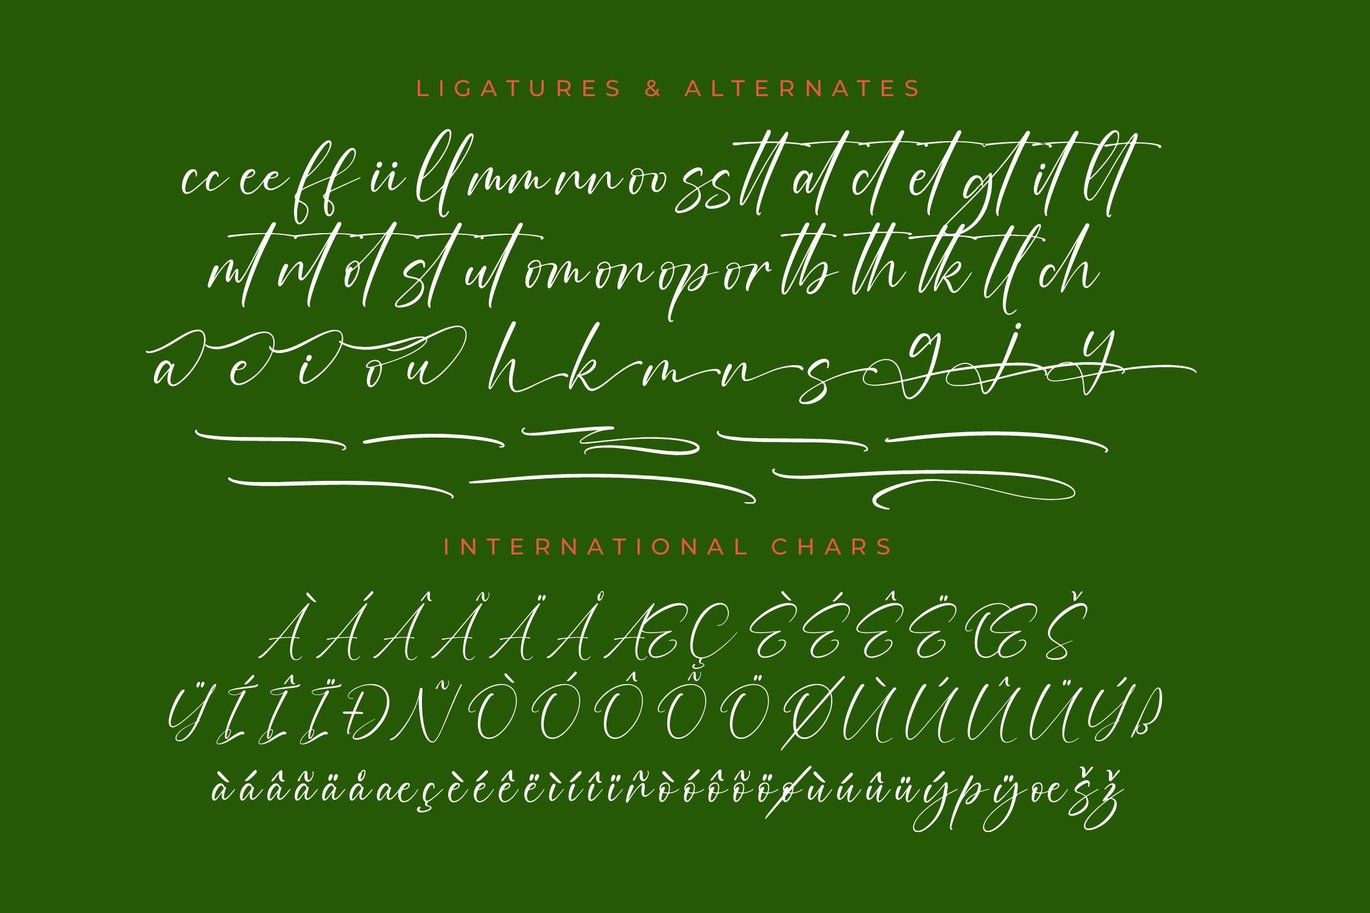 LIGATURES & ALTERNATES
cc ee ff ii ll mm nn oo ss tt at ct et gt it lt
mt nt ot st ut om on op or tb th tk tl ch
a e i o u h k m n s g j y
INTERNATIONAL CHARS
À Á Â Ã Ä Å Æ Ç È É Ê Ë Œ Š
Ÿ Í Î Ï Ð Ñ Ò Ó Ô Õ Ö Ø Ù Ú Û Ü Ý ß
à á â ã ä å æ ç è é ê ë ì í î ï ñ ò ó ô õ ö ø ù ú û ü ý þ ÿ œ š ž